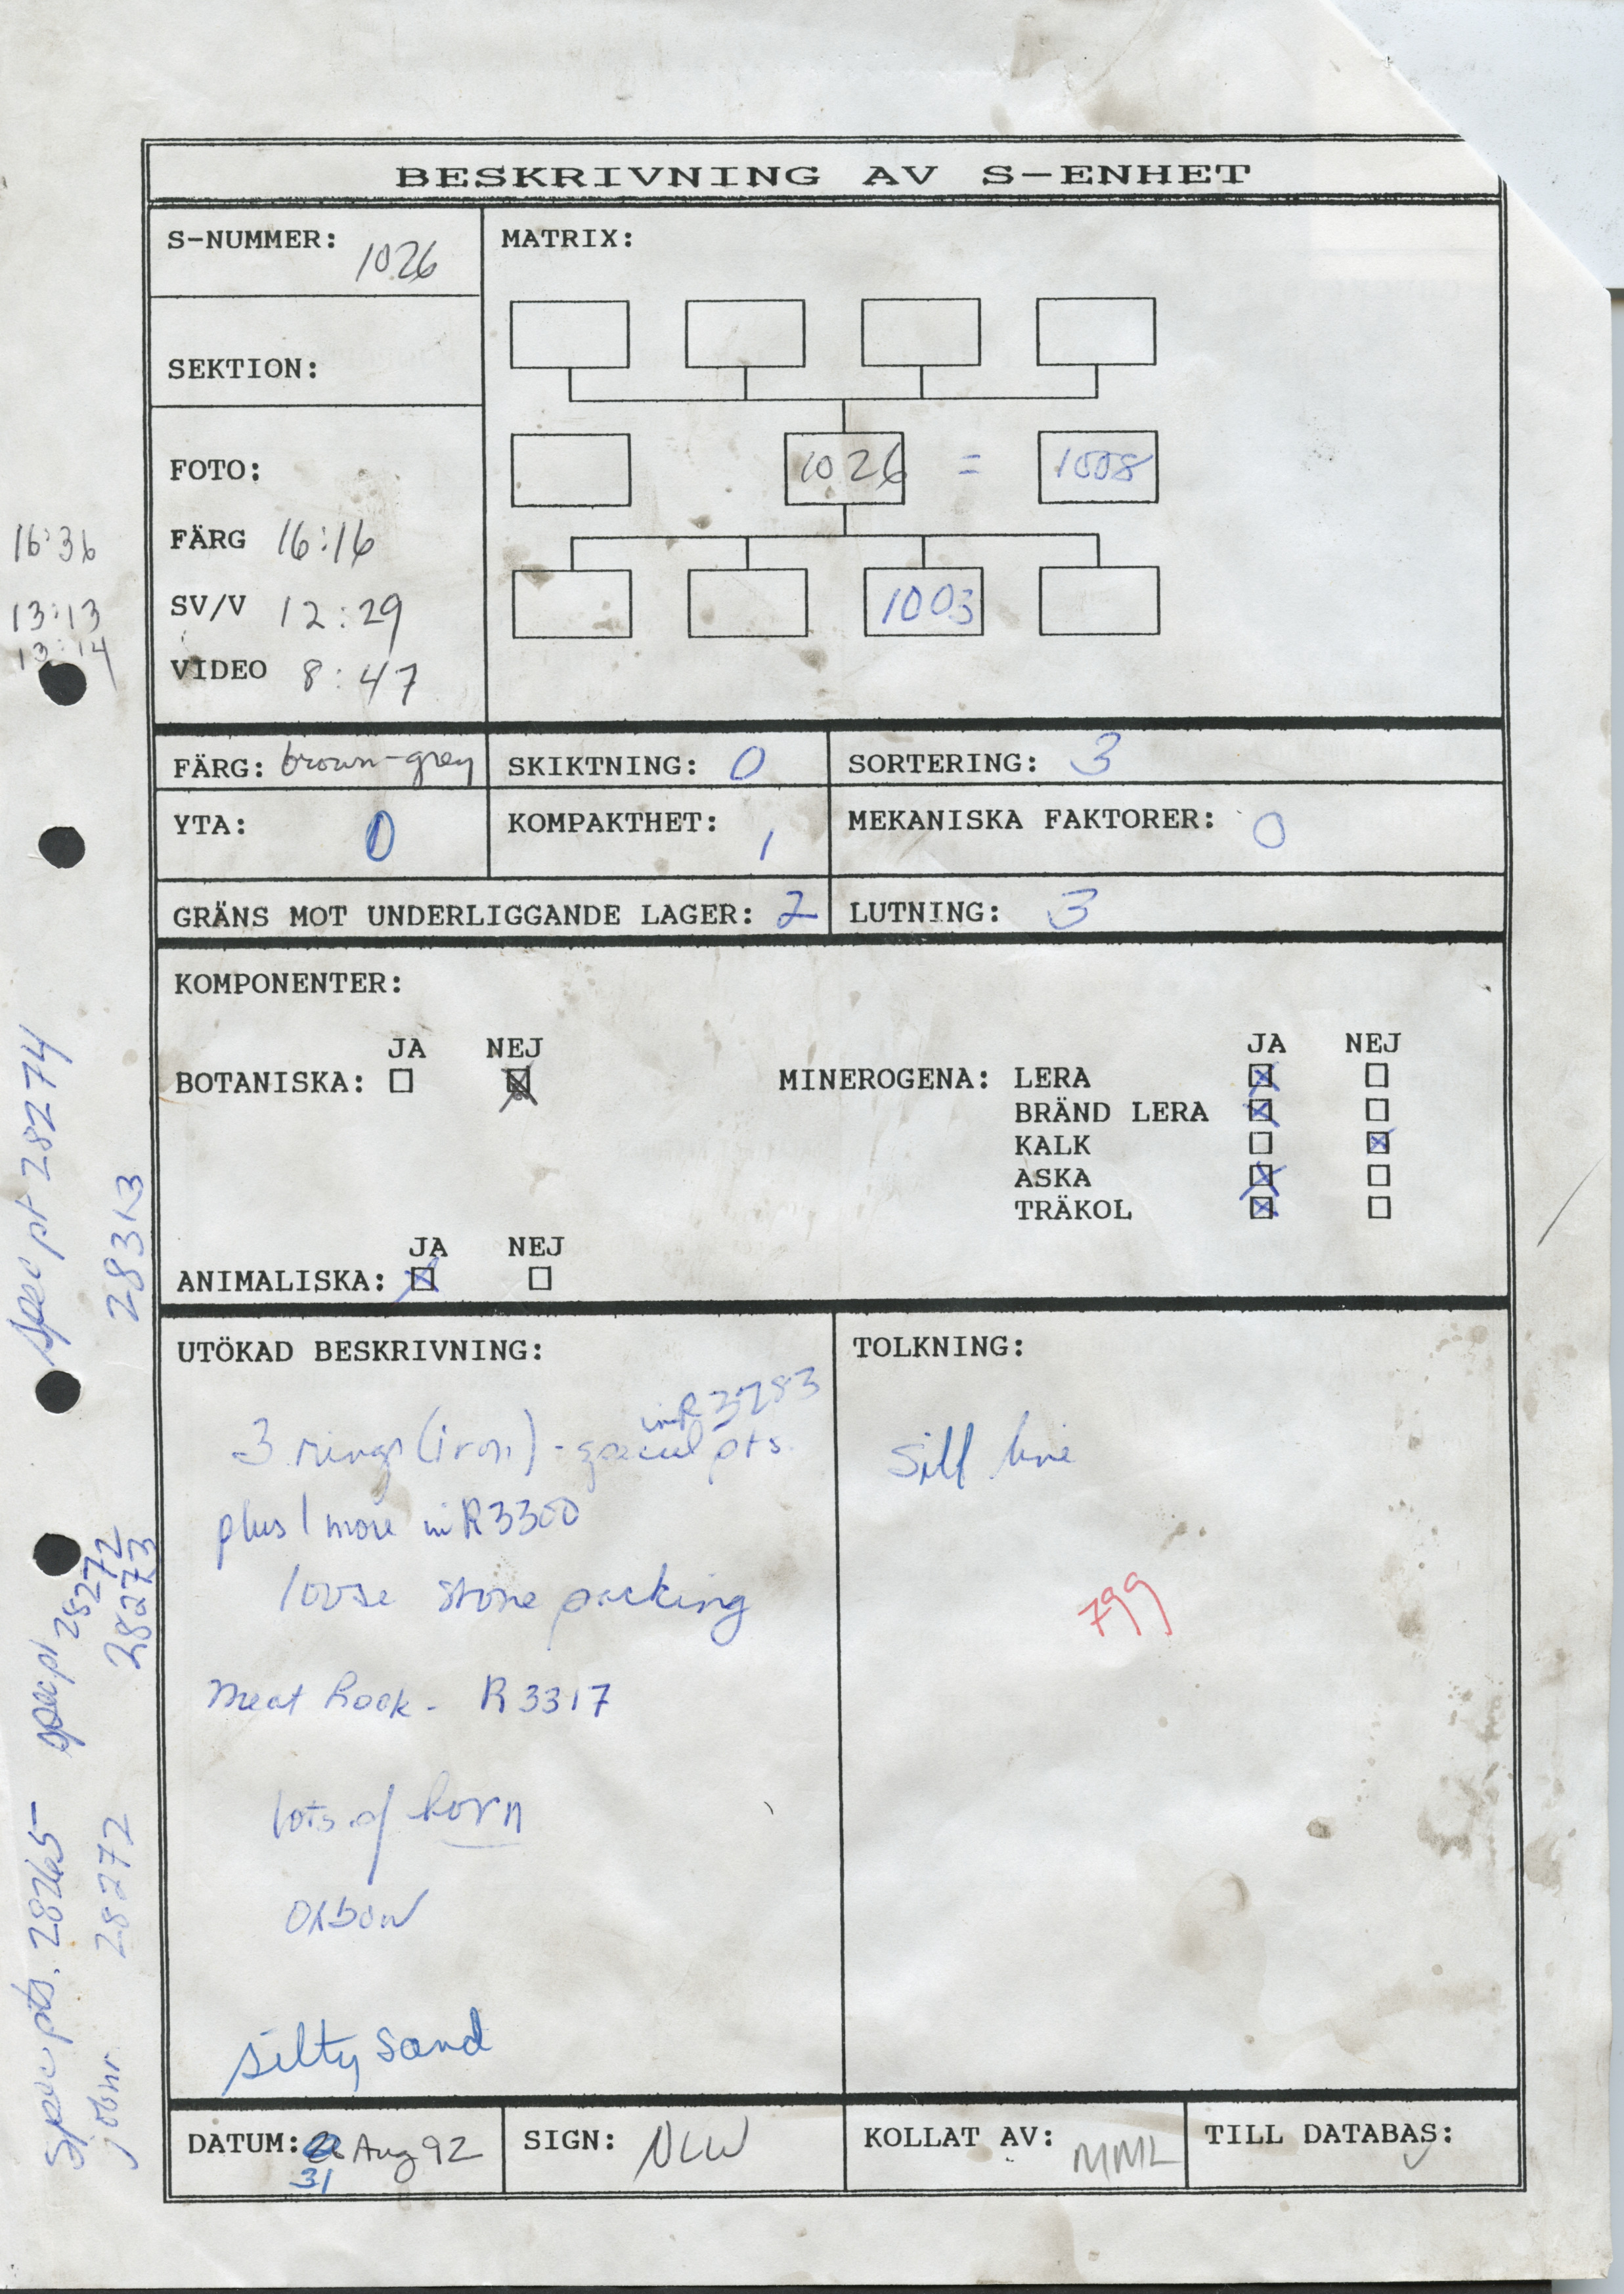 BESKRIVNING AV S-ENHET
S-NUMMER: 1026
MATRIX:
SEKTION:
1026 = 1008
1003
FOTO:
FÄRG 16:16
SV/V 12:29
VIDEO 8:47
16:36
13:13
13:14
FÄRG: brown-grey
SKIKTNING: 0
SORTERING: 3
YTA: 0
KOMPAKTHET: 1
MEKANISKA FAKTORER: 0
GRÄNS MOT UNDERLIGGANDE LAGER: 2
LUTNING: 3
KOMPONENTER:
JA NEJ
BOTANISKA:
JA NEJ
MINEROGENA: LERA
BRÄND LERA
KALK
ASKA
TRÄKOL
JA NEJ
ANIMALISKA:
UTÖKAD BESKRIVNING:
in R 3283
3 rings (iron) - special pts.
plus 1 more in R3300
loose stone packing
Meat hook - R 3317
lots of horn
oxbow
silty sand
TOLKNING:
Sill line
799
DATUM: Aug 92
31
SIGN: NLW
KOLLAT AV: MML
TILL DATABAS:
spec pt 28274
28313
spec pt 28272
28273
Spec pts. 28265-
28272